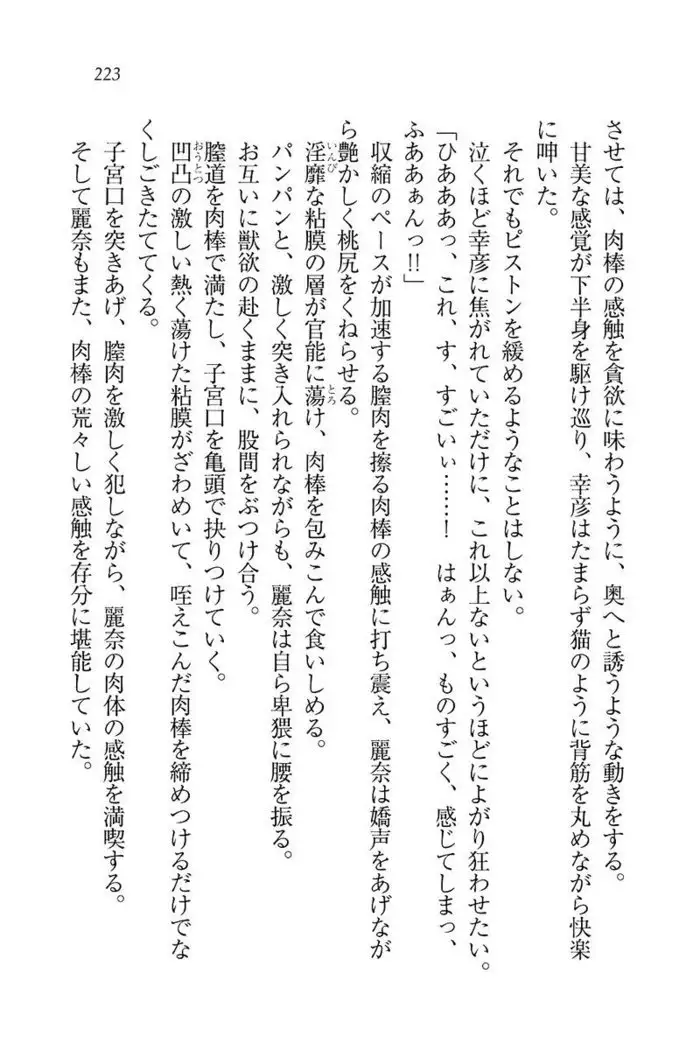 223
させては、肉棒の感触を貪欲に味わうように、奥へと誘うような動きをする。
甘美な感覚が下半身を駆け巡り、幸彦はたまらず猫のように背筋を丸めながら快楽
に呻いた。
それでもピストンを緩めるようなことはしない。
泣くほど幸彦に焦がれていただけに、これ以上ないというほどによがり狂わせたい。
「ひああああっ、これ、す、すごいぃ……！　はぁんっ、ものすごく、感じてしまっ、
ふああぁんっ‼」
収縮のペースが加速する膣肉を擦る肉棒の感触に打ち震え、麗奈は嬌声をあげなが
ら艶かしく桃尻をくねらせる。
いんび　とろ
淫靡な粘膜の層が官能に蕩け、肉棒を包みこんで食いしめる。
パンパンと、激しく突き入れられながらも、麗奈は自ら卑猥に腰を振る。
お互いに獣欲の赴くままに、股間をぶつけ合う。
膣道を肉棒で満たし、子宮口を亀頭で抉りつけていく。
おうとつ
凹凸の激しい熱く蕩けた粘膜がざわめいて、咥えこんだ肉棒を締めつけるだけでな
くしごきたててくる。
子宮口を突きあげ、膣肉を激しく犯しながら、麗奈の肉体の感触を満喫する。
そして麗奈もまた、肉棒の荒々しい感触を存分に堪能していた。